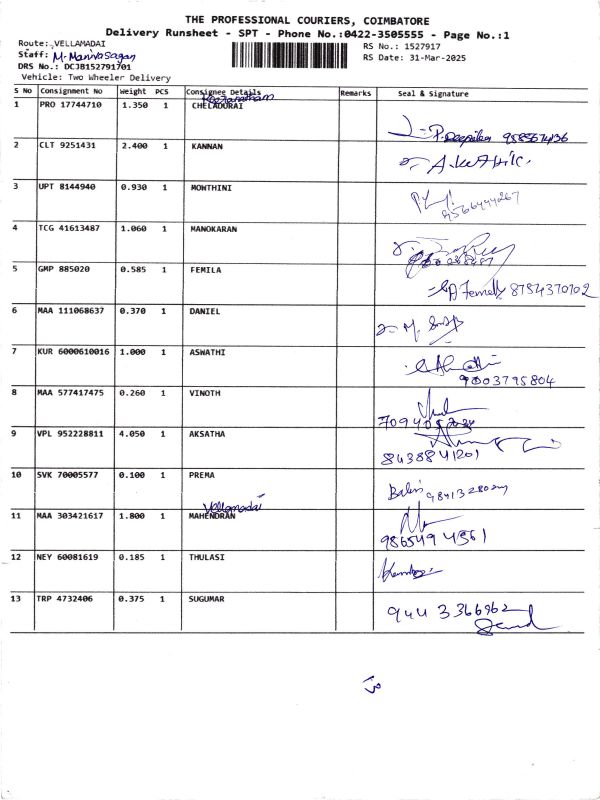 THE PROFESSIONAL COURIERS, COIMBATORE
Delivery Runsheet - SPT - Phone No.:0422-3505555 - Page No.:1
Route: VELLAMADAI
RS No.: 1527917
Staff: M. Manivasagan
RS Date: 31-Mar-2025
DRS No.: DCJB152791701
Vehicle: Two Wheeler Delivery
S No Consignment No Weight PCS Consignee Details Remarks Seal & Signature
1 PRO 17744710 1.350 1 CHELADURAI
P. Deepika 9585674136
2 CLT 9251431 2.400 1 KANNAN
3 UPT 8144940 0.930 1 MOWTHINI
9566444267
4 TCG 41613487 1.060 1 MANOKARAN
5 GMP 885020 0.585 1 FEMILA
8754370102
6 MAA 111068637 0.370 1 DANIEL
7 KUR 6000610016 1.000 1 ASWATHI
9003795804
8 MAA 577417475 0.260 1 VINOTH
9 VPL 952228811 4.050 1 AKSATHA
8438841201
10 SVK 70005577 0.100 1 PREMA
Vellamadai
11 MAA 303421617 1.800 1 MAHENDRAN
9865494561
12 NEY 60081619 0.185 1 THULASI
13 TRP 4732406 0.375 1 SUGUMAR
9443366962
13